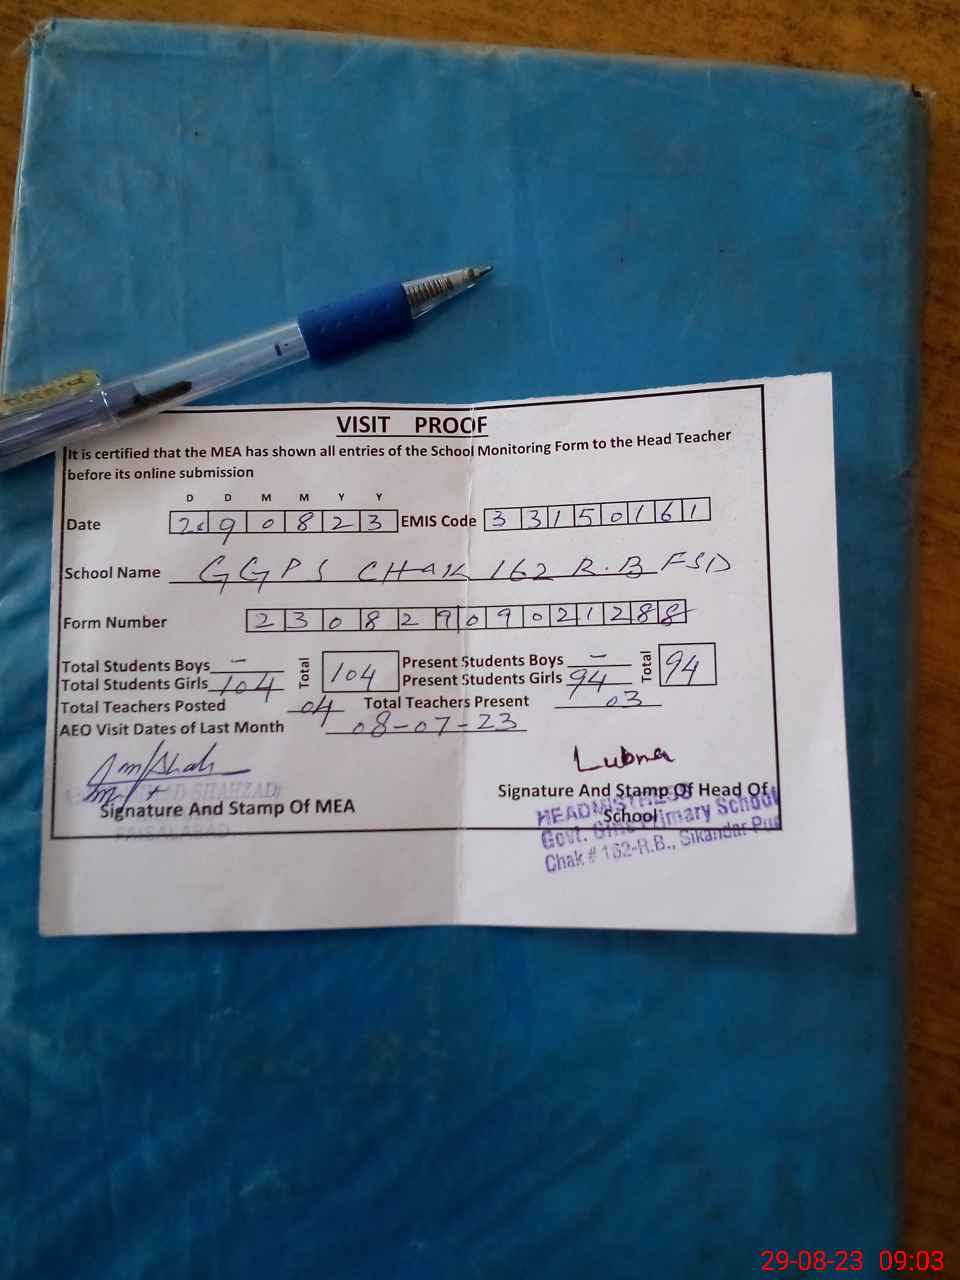 VISIT PROOF
It is certified that the MEA has shown all entries of the School Monitoring Form to the Head Teacher
before its online submission
D D M M Y Y
Date 290823 EMIS Code 33150161
School Name GGPS CHAK 162 R.B FSD
Form Number 23082909021288
Total Students Boys - Total 104 Present Students Boys - Total 94
Total Students Girls 104 Present Students Girls 94
Total Teachers Posted 04 Total Teachers Present 03
AEO Visit Dates of Last Month 08-07-23
Lubna
SHAHZAD
Signature And Stamp Of MEA Signature And Stamp Of Head Of
School
FAISALABAD
HEADMISTRESS
Govt. Girls Primary School
Chak # 162-R.B., Sikandar Pur
29-08-23 09:03